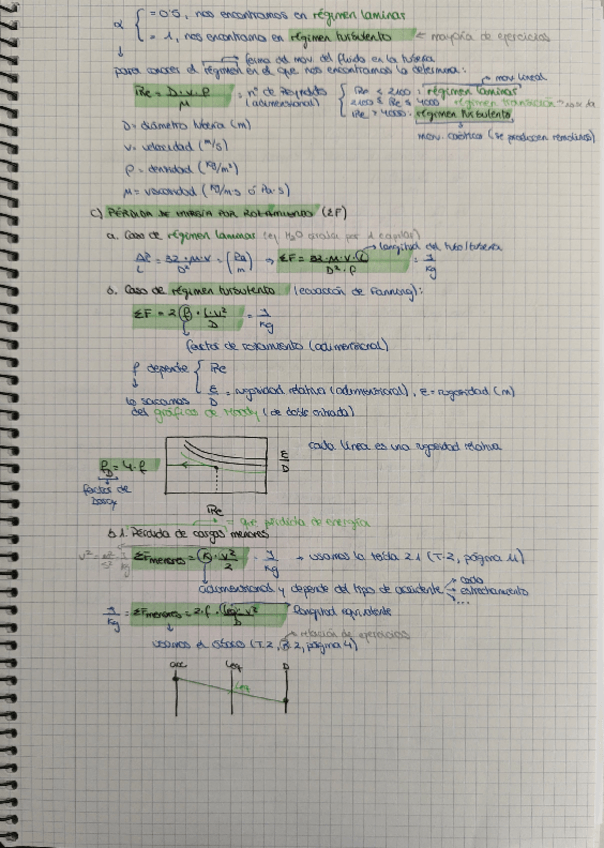 α { = 0'5, nos encontramos en régimen laminar
= 1, nos encontramos en régimen turbulento ← mayoría de ejercicios
↓ → forma del mov del fluido en la tubería
para conocer el régimen en el que nos encontramos lo determina:
Re = D·v·ρ / μ = nº de Reynolds (adimensional) { Re < 2100 : régimen laminar → mov. lineal
2100 ≤ Re ≤ 4000 : régimen transición
Re > 4000 : régimen turbulento
mov. caótico (se producen remolinos)
D = diámetro tubería (m)
v = velocidad (m/s)
ρ = densidad (kg/m³)
μ = viscosidad (kg/m·s ó Pa·s)
c) PÉRDIDA DE ENERGÍA POR ROZAMIENTO (ΣF)
a. Caso de régimen laminar (ej H₂O circula por 1 capilar)
ΔP/L = 32·μ·v / D² = (Pa/m) → ΣF = 32·μ·v·L / D²·ρ = J/kg → longitud del tubo/tubería
b. Caso de régimen turbulento (ecuación de Fanning):
ΣF = 2·f·L·v²/D = J/kg
factor de rozamiento (adimensional)
f depende { Re
ε/D = rugosidad relativa (adimensional), ε = rugosidad (m)
↓
lo sacamos
del gráfico de Moody (de doble entrada)
cada línea es una rugosidad relativa
ε/D
f_D = 4·f
factor de
Darcy
Re
→ = que pérdida de energía
b.1. Pérdida de cargas menores
ΣF menores = K·v²/2 = J/kg → usamos la tabla 2.1 (T.2, página 11)
adimensional y depende del tipo de accidente → codo
→ estrechamiento
→ ...
J/kg = ΣF menores = 2·f·Leq·v²/D → longitud equivalente
→ relación de ejercicios
usamos el ábaco (T.2, R.2, página 4)
acc Leq D
Leq